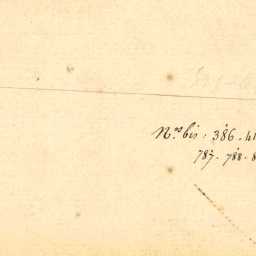 N.os bis. 386. 41
787. 788. 8